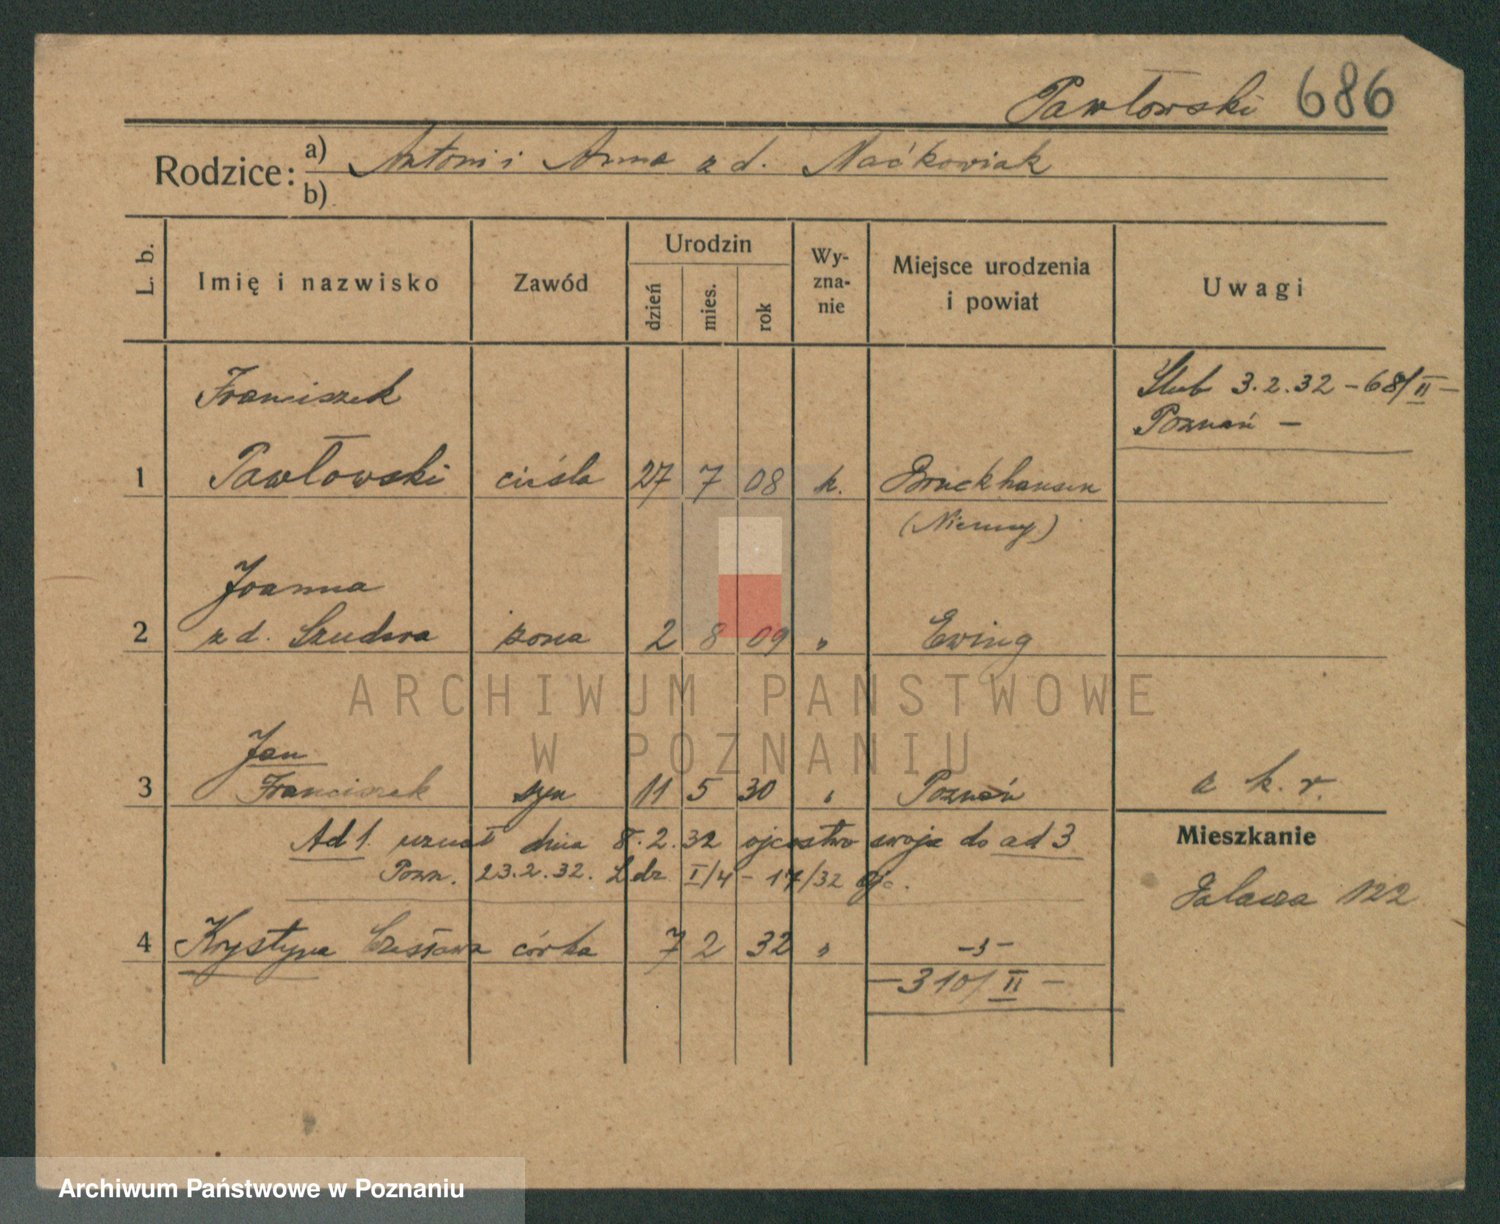 Pawłowski 686
Rodzice: a) Antoni i Anna z d. Maćkowiak
b)
L. b. Imię i nazwisko Zawód Urodzin dzień mies. rok Wy-zna-nie Miejsce urodzenia i powiat Uwagi
Franciszek Ślub 3.2.32 – 68/II –
Poznań –
1 Pawłowski cieśla 27 7 08 k. Bruckhausen
(Niemcy)
Joanna
2 z d. Szudera żona 2 8 09 " Ewing
ARCHIWUM PAŃSTWOWE
W POZNANIU
Jan
3 Franciszek syn 11 5 30 " Poznań a k. r.
Ad 1. uznał dnia 8.2.32 ojcostwo swoje do ad 3
Pozn. 23.2.32. I/4 – 17/32
Mieszkanie
122
4 Krystyna Czesława córka 7 2 32 " –3–
– 310/II –
Archiwum Państwowe w Poznaniu